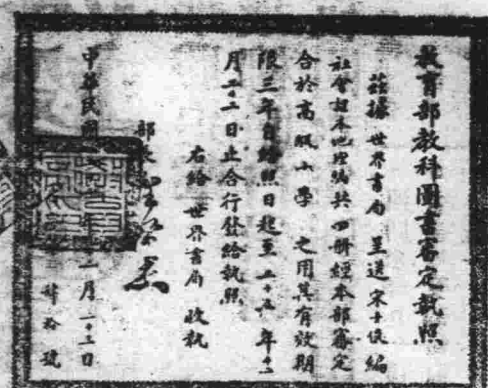 教育部教科圖書審定執照
茲據 世界書局 呈送 宋子俊編
社會課本地理編共四冊經本部審定
合於高級小學 之用其有效期
限三年自給照日起至二十五年十二
月二十二日止合行發給執照
右給 世界書局 收執
部長
中華民國 二月二十三日
拾 號